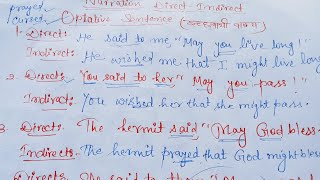 prayed Narration Direct-Indirect
cursed Optative Sentence (इच्छासूची वाक्य)
1. Direct:- He said to me "May you live long!"
Indirect:- He wished me that I might live long
2. Direct:- You said to her "May you pass!"
Indirect:- You wished her that she might pass.
3. Direct:- The hermit said "May God bless
Indirect:- The hermit prayed that God might bless
Direct:- said to the